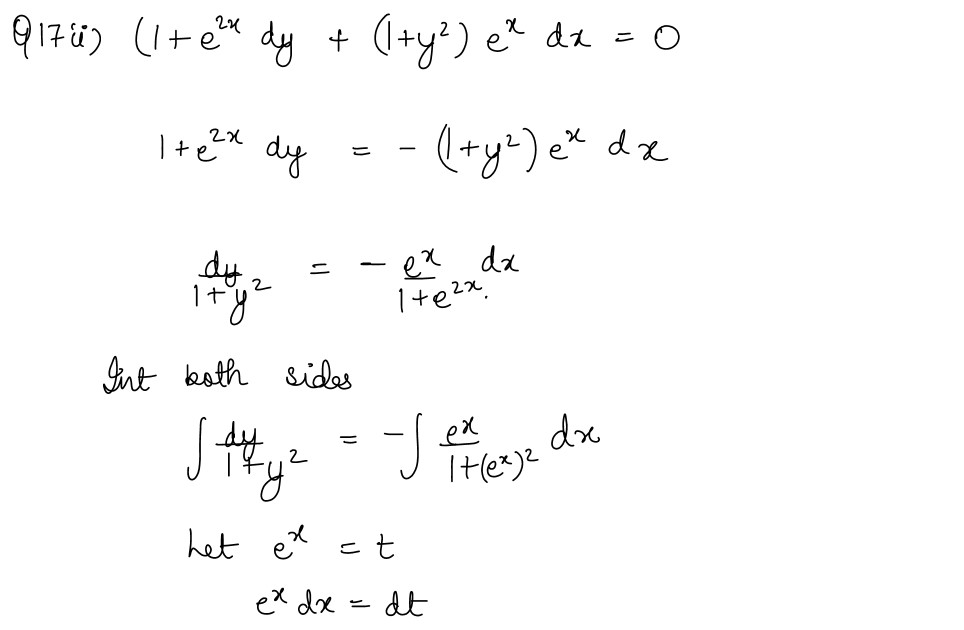 Q17 ii) (1 + e^{2x} dy + (1+y²) e^x dx = 0
1+e^{2x} dy = - (1+y²) e^x dx
dy/(1+y²) = - e^x/(1+e^{2x}) dx
Int both sides
∫ dy/(1+y²) = -∫ e^x/(1+(e^x)²) dx
Let e^x = t
e^x dx = dt